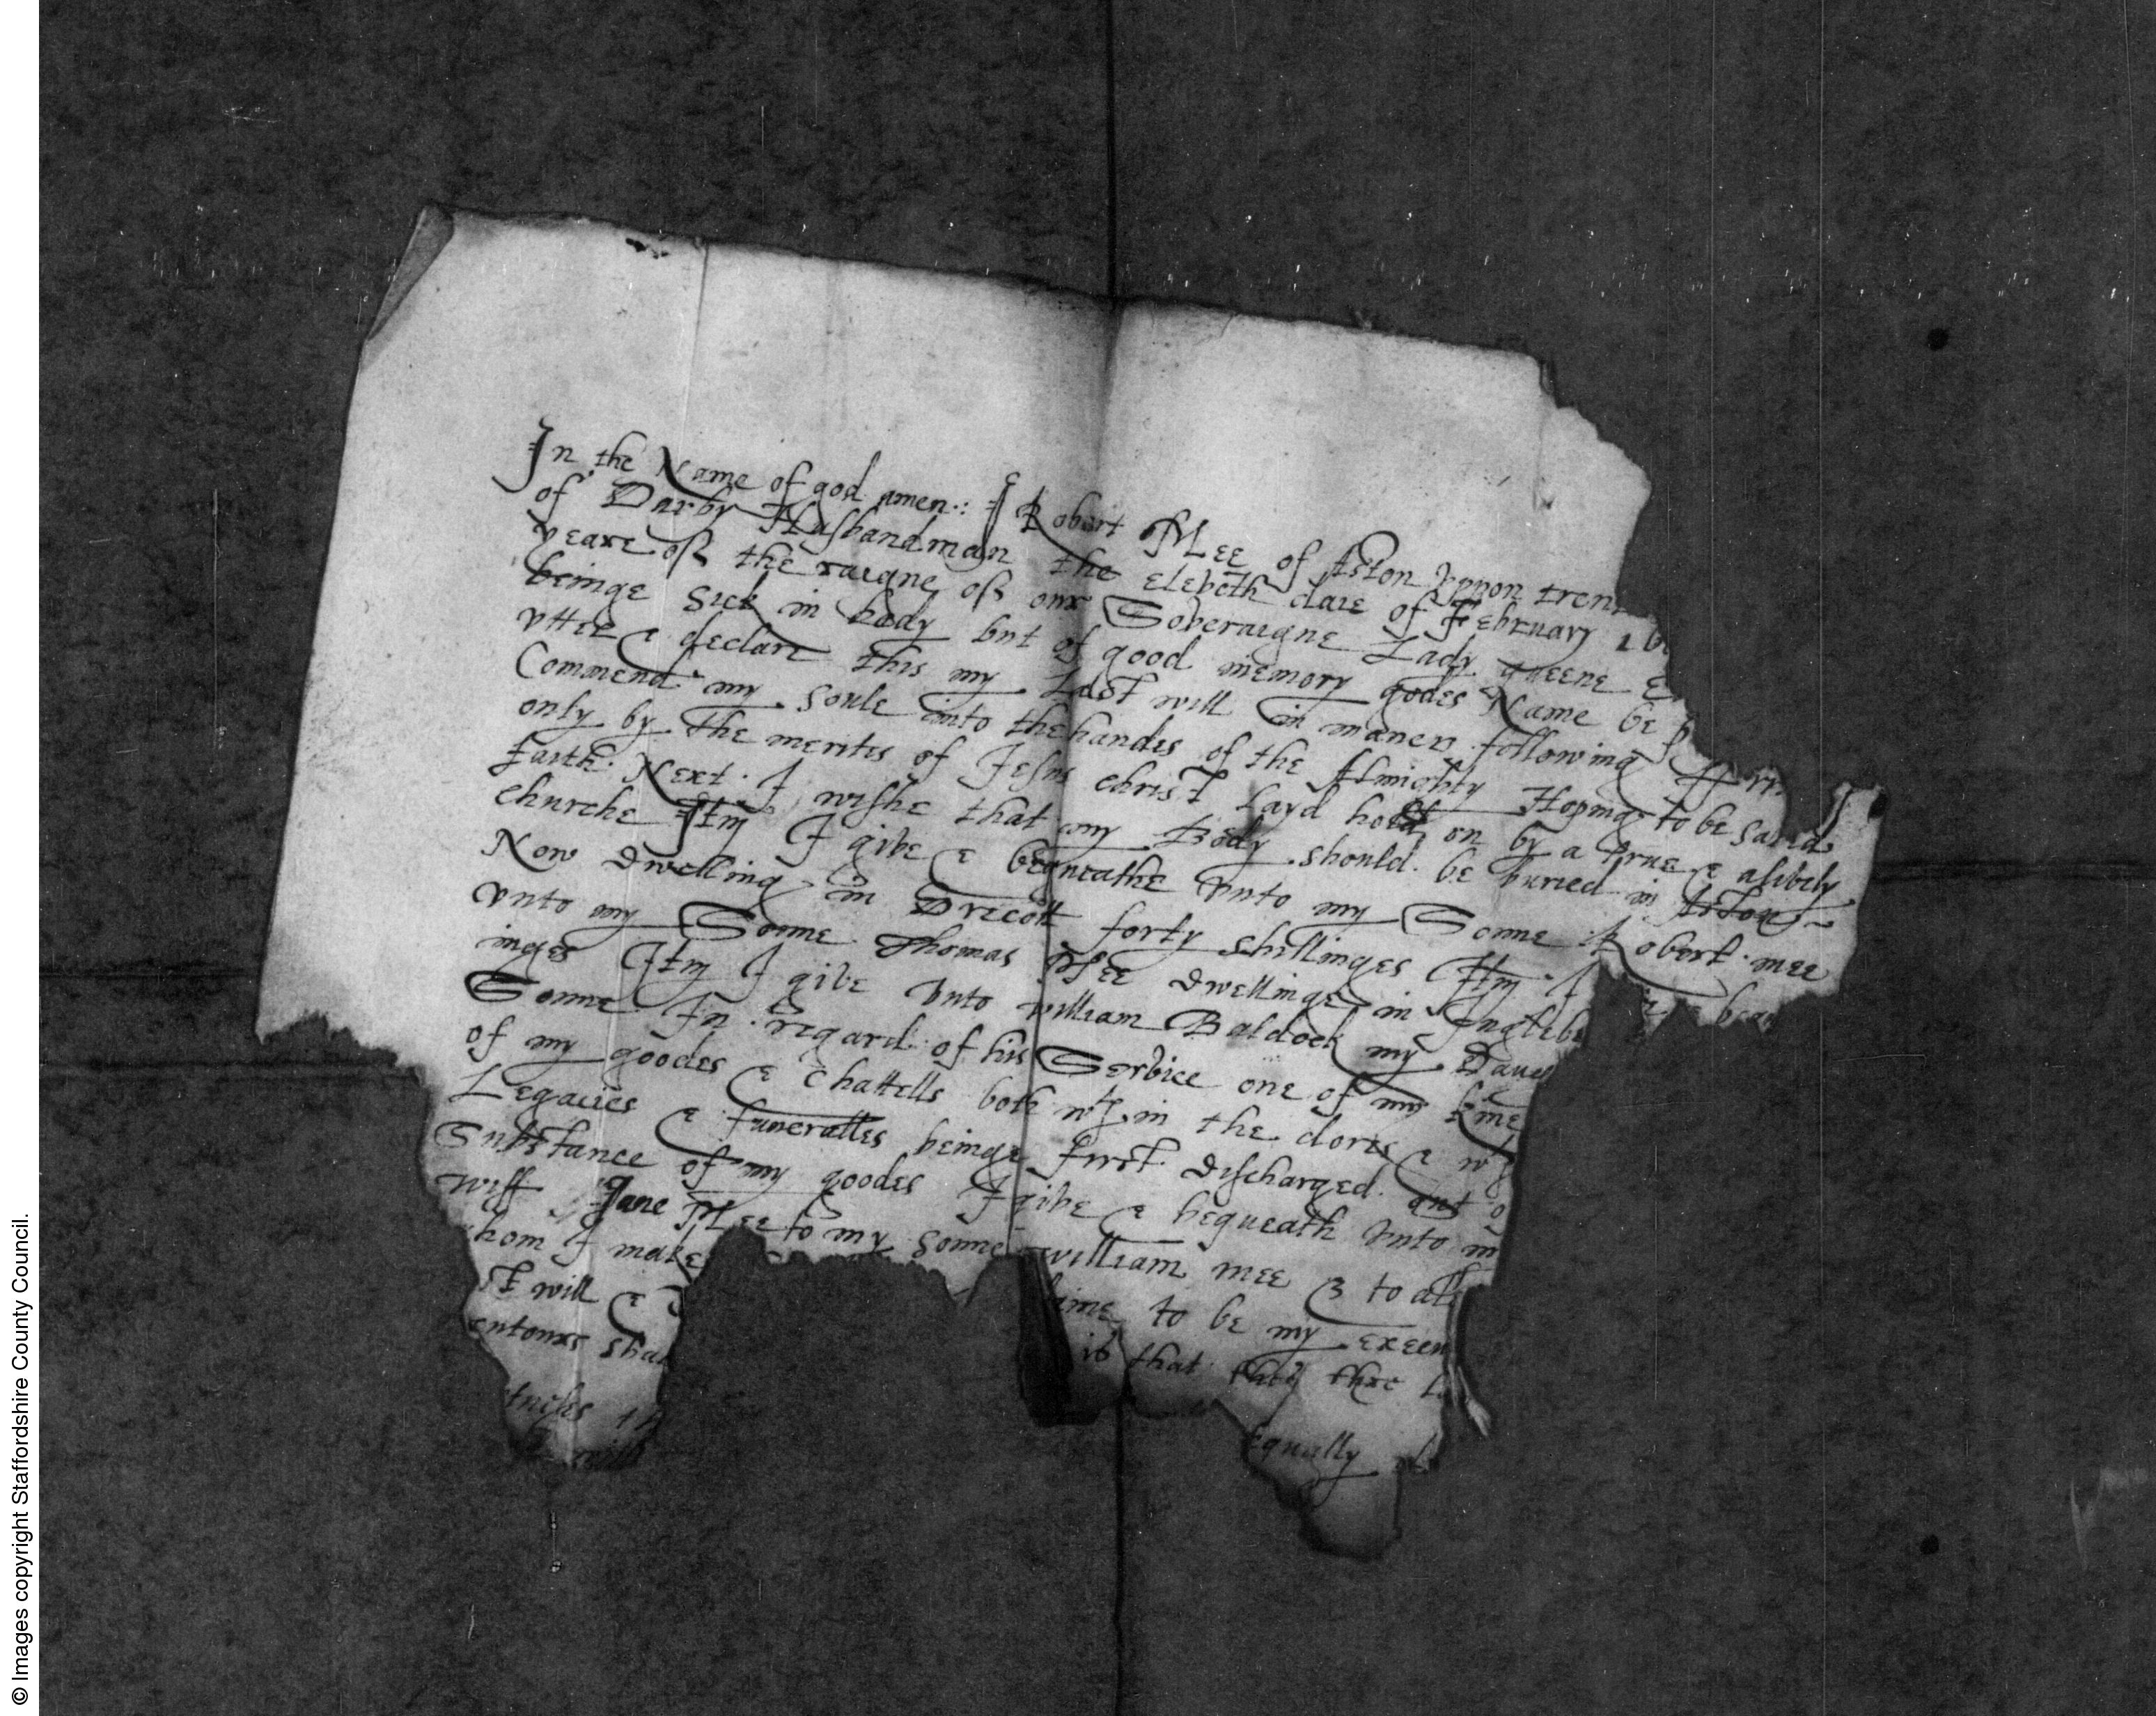 In the Name of god amen: I Robart Mee of Aston Vppon tren
of Darby Husbandman the eleveth daie of February 16
yeare off the raigne off our Soveraigne Lady queene E
beinge Sick in body but of good memory godes Name be p
vtter & declare this my Last will in maner following Firr
Commend my Soule into the handes of the Almighty Hoping to be saved
only by the merites of Jesus christ Layd hold on by a true & alively
Faith. Next. I wishe that my Body should be buried in Aston
churche Itm I give & bequeathe Vnto my Sonne Robert mee
Now Dwelling in Dricott forty shillinges Itm I
Vnto my Sonne Thomas Mee Dwellinge in Inglebe
inges Itm I give Vnto william Baldock my Daue
Sonne In regard of his Service one of my
of my goodes & Chattells both wth in the dores & wth
Legacies & funeralles beinge first Discharged. And
Substance of my goodes I give & bequeath Vnto m
wiff Jane Mee to my Sonne william mee & to all
hom I make to be my exeeu
st will & that
entours shal
Equally
will
© Images copyright Staffordshire County Council.